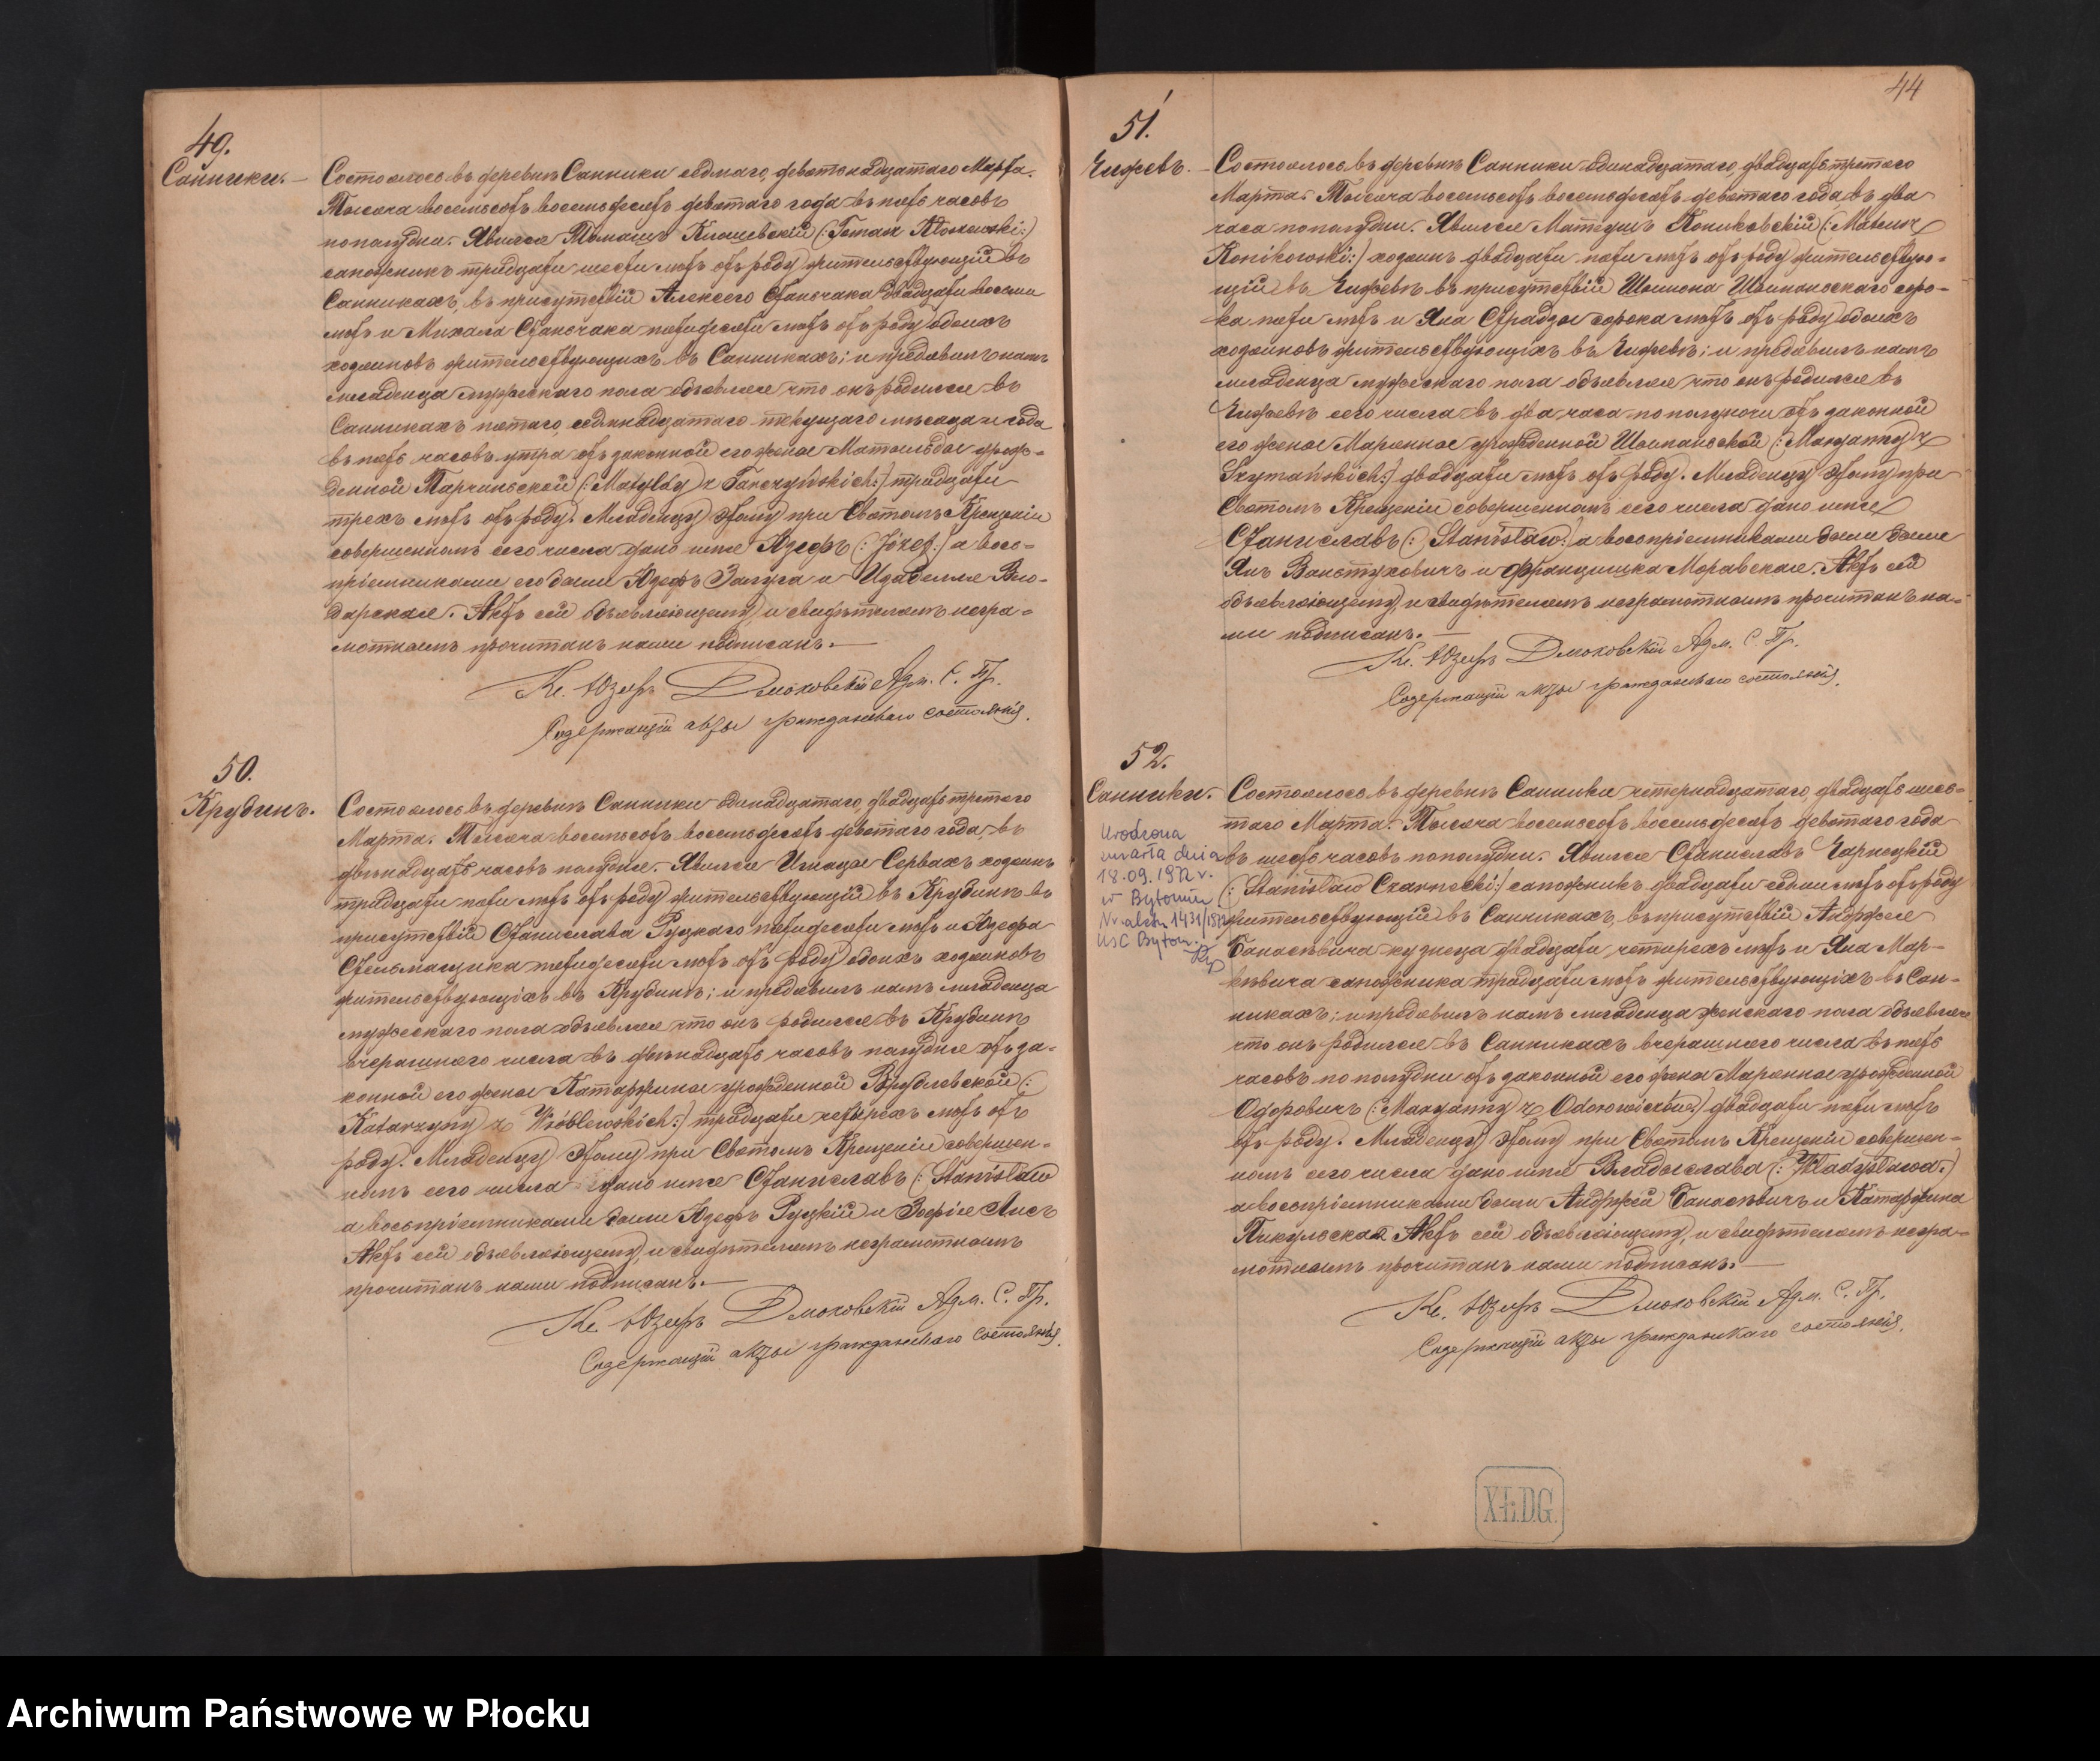 49.
Санники. — Состоялось въ деревнѣ Санники седьмаго, девятнадцатаго Марта.
Тысяча восемьсотъ восемьдесятъ девятаго года въ пять часовъ
пополудни. Явился Томашъ Клошевскій (: Tomasz Kłoszewski :)
сапожникъ тридцати шести лѣтъ отъ роду жительствующій въ
Санникахъ, въ присутствіи Алексего Станчака двадцати восьми
лѣтъ и Михала Станчака пятидесяти лѣтъ отъ роду обоихъ
хозяиновъ жительствующихъ въ Санникахъ; и предъявилъ намъ
младенца мужескаго пола объявляя что онъ родился въ
Санникахъ пятаго, семнадцатаго текущаго мѣсяца и года
въ пять часовъ утра отъ законной его жены Матыльды урож-
денной Тарчиньской (: Matyldy z Tarczyńskich :) тридцати
трехъ лѣтъ отъ роду. Младенцу этому при Святомъ Крещеніи
совершенномъ сего числа дано имя Юзефъ (: Józef :) а восп-
ріемниками его были Юзефъ Залуга и Изабелля Вло-
дарская. Актъ сей объявляющему и свидѣтелямъ негра-
мотнымъ прочитанъ нами подписанъ. —
Кс. Юзефъ Дмоховскій Адм. С. Пр.
Содержащій акты гражданскаго состоянія.
50.
Крубинъ. Состоялось въ деревнѣ Санники одинадцатаго, двадцать третяго
Марта. Тысяча восемьсотъ восемьдесятъ девятаго года въ
двѣнадцать часовъ полудня. Явился Игнацы Сервахъ хозяинъ
тридцати пяти лѣтъ отъ роду жительствующій въ Крубинѣ въ
присутствіи Станислава Руцкаго пятидесяти лѣтъ и Юзефа
Стельмащика пятидесяти лѣтъ отъ роду обоихъ хозяиновъ
жительствующихъ въ Крубинѣ; и предъявилъ намъ младенца
мужескаго пола объявляя что онъ родился въ Крубинѣ
вчерашняго числа въ двѣнадцать часовъ полудня отъ за-
конной его жены Катаржины урожденной Врублевской (:
Katarzyny z Wróblewskich :) тридцати четырехъ лѣтъ отъ
роду. Младенцу этому при Святомъ Крещеніи совершен-
номъ сего числа дано имя Станиславъ (: Stanisław
а воспріемниками были Юзефъ Руцкій и Зофія Лисъ
Актъ сей объявляющему и свидѣтелямъ неграмотнымъ
прочитанъ нами подписанъ. —
Кс. Юзефъ Дмоховскій Адм. С. Пр.
Содержащій акты гражданскаго состоянія.
44
51.
Состоялось въ деревнѣ Санники одинадцатаго, двадцать третяго
Марта. Тысяча восемьсотъ восемьдесятъ девятаго года, въ два
часа пополудни. Явился Матеушъ Кониковскій (: Mateusz
Konikowski :) хозяинъ двадцати пяти лѣтъ отъ роду жительствую-
щій въ въ присутствіи Шимона Шиманьскаго соро-
ка пяти лѣтъ и Яна Страдзы сорока лѣтъ отъ роду обоихъ
хозяиновъ жительствующихъ въ и предъявилъ намъ
младенца мужескаго пола объявляя что онъ родился въ
сего числа въ два часа пополуночи отъ законной
его жены Маріянны урожденной Шиманьской (: Maryanny z
Szymańskich :) двадцати лѣтъ отъ роду. Младенцу этому при
Святомъ Крещеніи совершенномъ сего числа дано имя
Станиславъ (: Stanisław :) а воспріемниками были
Янъ и Францишка Моравская. Актъ сей
объявляющему и свидѣтелямъ неграмотнымъ прочитанъ на-
ми подписанъ. —
Кс. Юзефъ Дмоховскій Адм. С. Пр.
Содержащій акты гражданскаго состоянія.
52.
Санники. Состоялось въ деревнѣ Санники четернадцатаго, двадцать шес-
таго Марта. Тысяча восемьсотъ восемьдесятъ девятаго года
въ шесть часовъ пополудни. Явился Станиславъ Чарнецкій
(: Stanisław Czarnecki :) сапожникъ двадцати семи лѣтъ отъ роду
жительствующій въ Санникахъ, въ присутствіи Андржея
Банасѣвича кузнеца двадцати четырехъ лѣтъ и Яна Мар-
кѣвича сапожника тридцати лѣтъ жительствующихъ въ Сан-
никахъ; и предъявилъ намъ младенца женскаго пола объявляя
что онъ родился въ Санникахъ вчерашняго числа въ пять
часовъ пополудни отъ законной его жены Маріянны урожденной
Одоровичъ (: Maryanny z Odorowiczów :) двадцати пяти лѣтъ
отъ роду. Младенцу этому при Святомъ Крещеніи совершен-
номъ сего числа дано имя Владыслава (: Władysława :)
а воспріемниками были Андржей Банасѣвичъ и Катаржина
Пикульская Актъ сей объявляющему, и свидѣтелямъ негра-
мотнымъ прочитанъ нами подписанъ. —
Кс. Юзефъ Дмоховскій Адм. С. Пр.
Содержащій акты гражданскаго состоянія.
Urodzona
zmarła dnia
18.09.197 r.
w Bytomiu
Nr aktu 1431/
USC Bytom.
X.Ł.D.G.
Archiwum Państwowe w Płocku